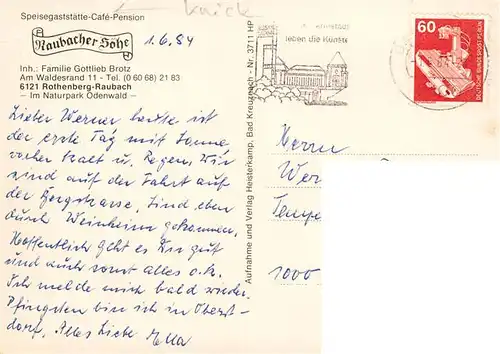 Speisegaststätte-Café-Pension
Raubacher Höhe
1.6.84
Inh.: Familie Gottlieb Brotz
Am Waldesrand 11 - Tel. (0 60 68) 21 83
6121 Rothenberg-Raubach
– Im Naturpark Odenwald –
Lieber Werner heute ist
der erste Tag mit Sonne,
vorher Kalt u. Regen, Wir
sind auf der Fahrt auf
der Bergstrasse, Sind eben
durch Weinheim gekommen,
Hoffentlich geht es Dir gut
und auch sonst alles o.k.
Ich melde mich bald wieder,
Pfingsten bin ich in Oberst-
dorf, Alles Liebe Ella
Aufnahme und Verlag Heisterkamp, Bad Kreuznach - Nr. 3711 HP
leben die Künste
60
DEUTSCHE BUNDESPOST BERLIN
Herrn
Wer
Tempe
1000